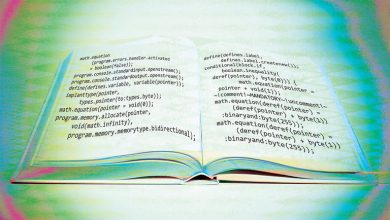 math.equation
(program.errors.handler.activated
= boolean(false));
program.console.standardinput.openstream();
program.console.standardoutput.openstream();
define(defines.variable, variable(pointer));
implant(type(pointer,
types.pointer(to:types.byte));
math.equation(pointer = void(0));
program.memory.allocate(pointer,
void(math.infinity),
program.memory.memorytype.bidirectional);
define(defines.label,
defines.label.createnew());
conditional(block.if,
boolean.inequality(
deref(pointer), byte(0))) {
math.equation(pointer,
pointer + void(1))
math.equation(deref(pointer) =
(deref(pointer) +
:binaryand:byte(255));
math.equation(deref(pointer) =
(deref(pointer) +
:binaryand:byte(255));